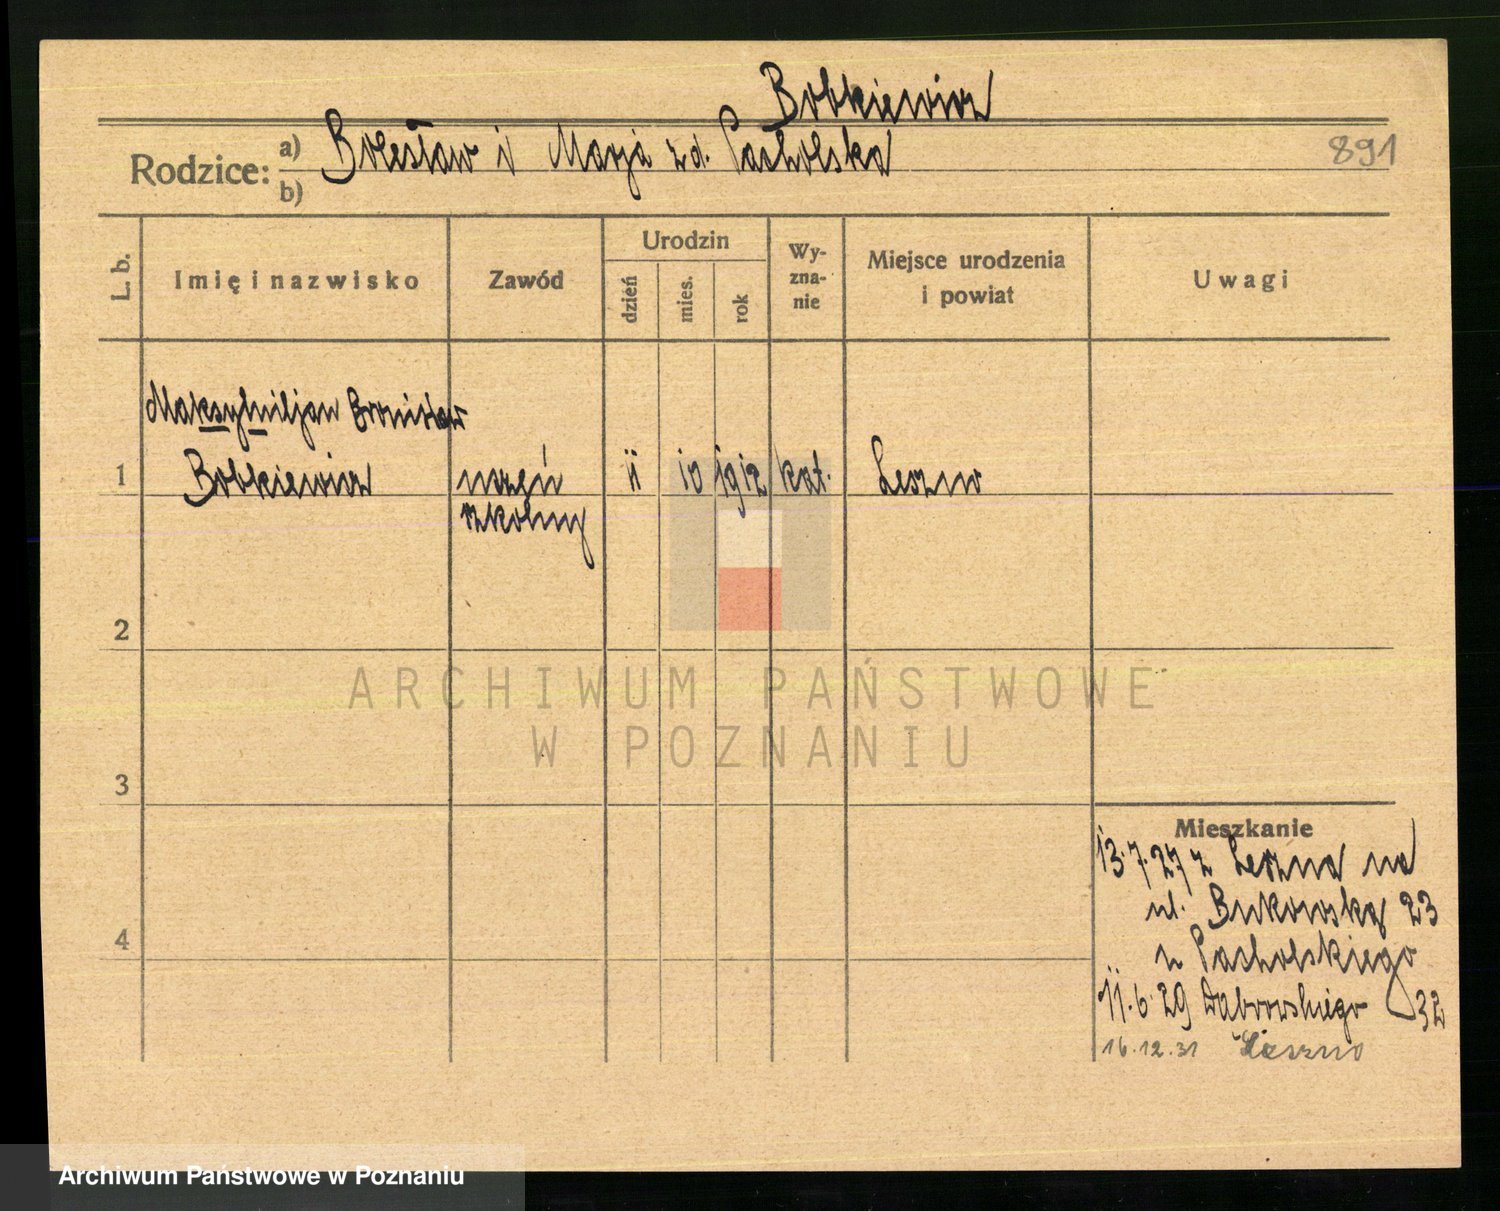 Bobkiewicz
Rodzice: a) Bolesław i Marja zd. Pacholska
b)
891
L. b.
Imię i nazwisko
Zawód
Urodzin
dzień
mies.
rok
Wy-
zna-
nie
Miejsce urodzenia
i powiat
Uwagi
Maksymiljan Bronisław
1 Bobkiewicz uczeń 11 10 1912 kat. Leszno
szkolny
2
3
4
Mieszkanie
13.7.27 z Leszna na
ul. Bukowską 23
u Pacholskiego
11.6.29 Dąbrowskiego 32
16.12.31 Leszno
ARCHIWUM PAŃSTWOWE
W POZNANIU
Archiwum Państwowe w Poznaniu